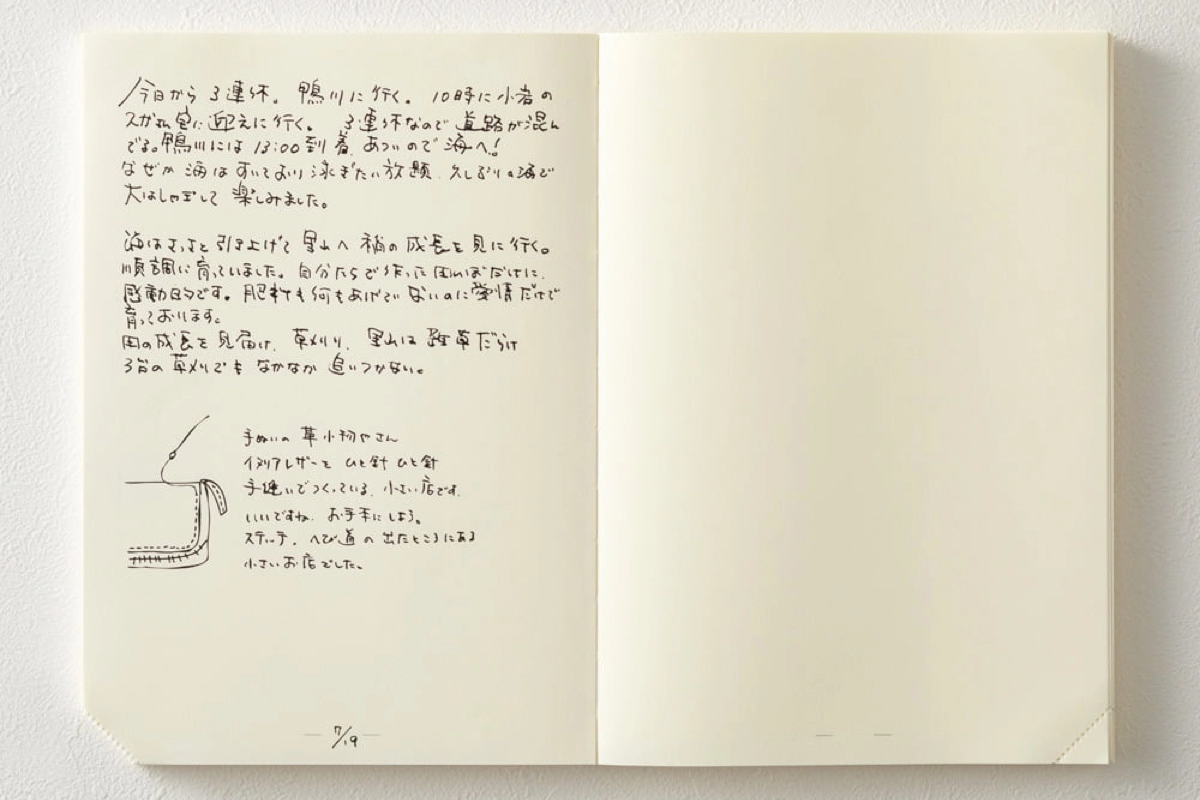 今日から3連休。鴨川に行く。10時に小岩の
迎えに行く。3連休なので道路が混ん
でる。鴨川には13:00到着、あついので海へ!
なぜか海はすいており泳ぎたい放題、久しぶりの海で
大はしゃぎして楽しみました。
海はさっさと引き上げて里山へ稲の成長を見に行く。
順調に育っていました。自分たちで作った田んぼだけに、
感動的です。肥料も何もあげていないのに愛情だけで
育っております。
田の成長を見届け、草刈り、里山は雑草だらけ
3台の草刈りでもなかなか追いつかない。
手ぬいの革小物やさん
イタリアレザーをひと針ひと針
手縫いでつくっている、小さい店です。
いいですね、お手本にしよう。
ステッチ、へび道の出たところにある
小さいお店でした。
7/19